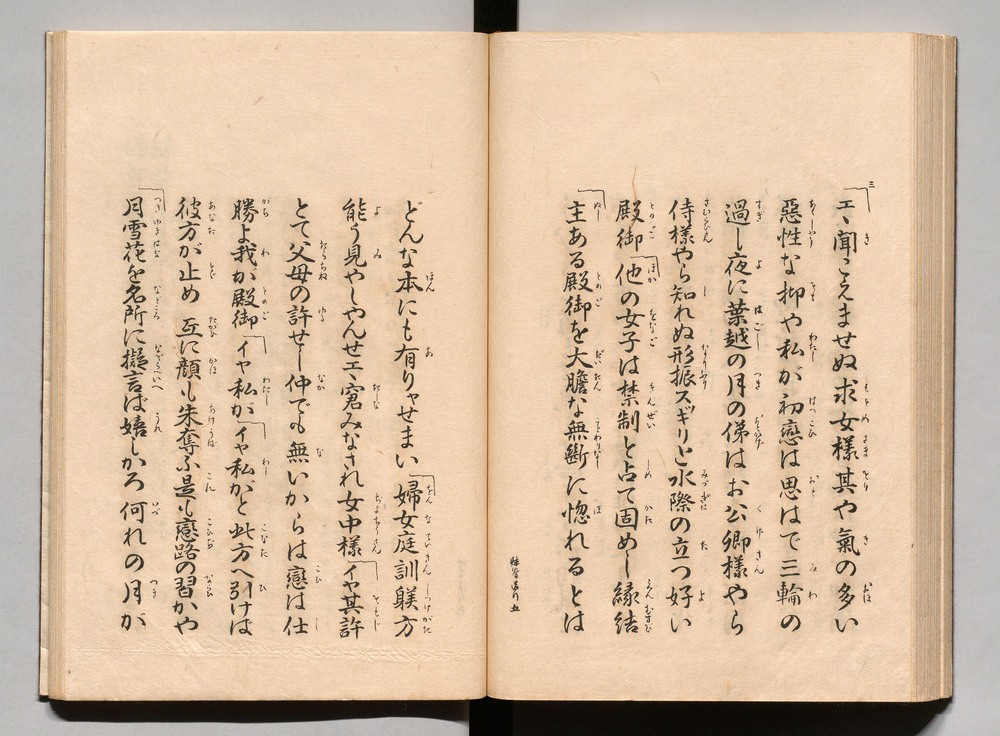 「エヽ聞こえませぬ求女様其や氣の多い
惡性な抑や私が初戀は思はで三輪の
過し夜に葉越の月の俤はお公卿様やら
侍様やら知れぬ形振スッギリと水際の立つ好い
殿御「他の女子は禁制と占て固めし縁結
「主ある殿御を大膽な無斷に惚れるとは
どんな本にも有りやせまい「婦女庭訓躾方
能う見やしやんせエヽ窘みなされ女中様「イヤ其許
とて父母の許せし仲でも無いからは戀は仕
勝よ我が殿御「イヤ私が「イヤ私がと此方へ引けば
彼方が止め 互に顔も朱奪ふ是も戀路の習かや
「月雪花を名所に擬言ば嬉しかろ 何れの月が